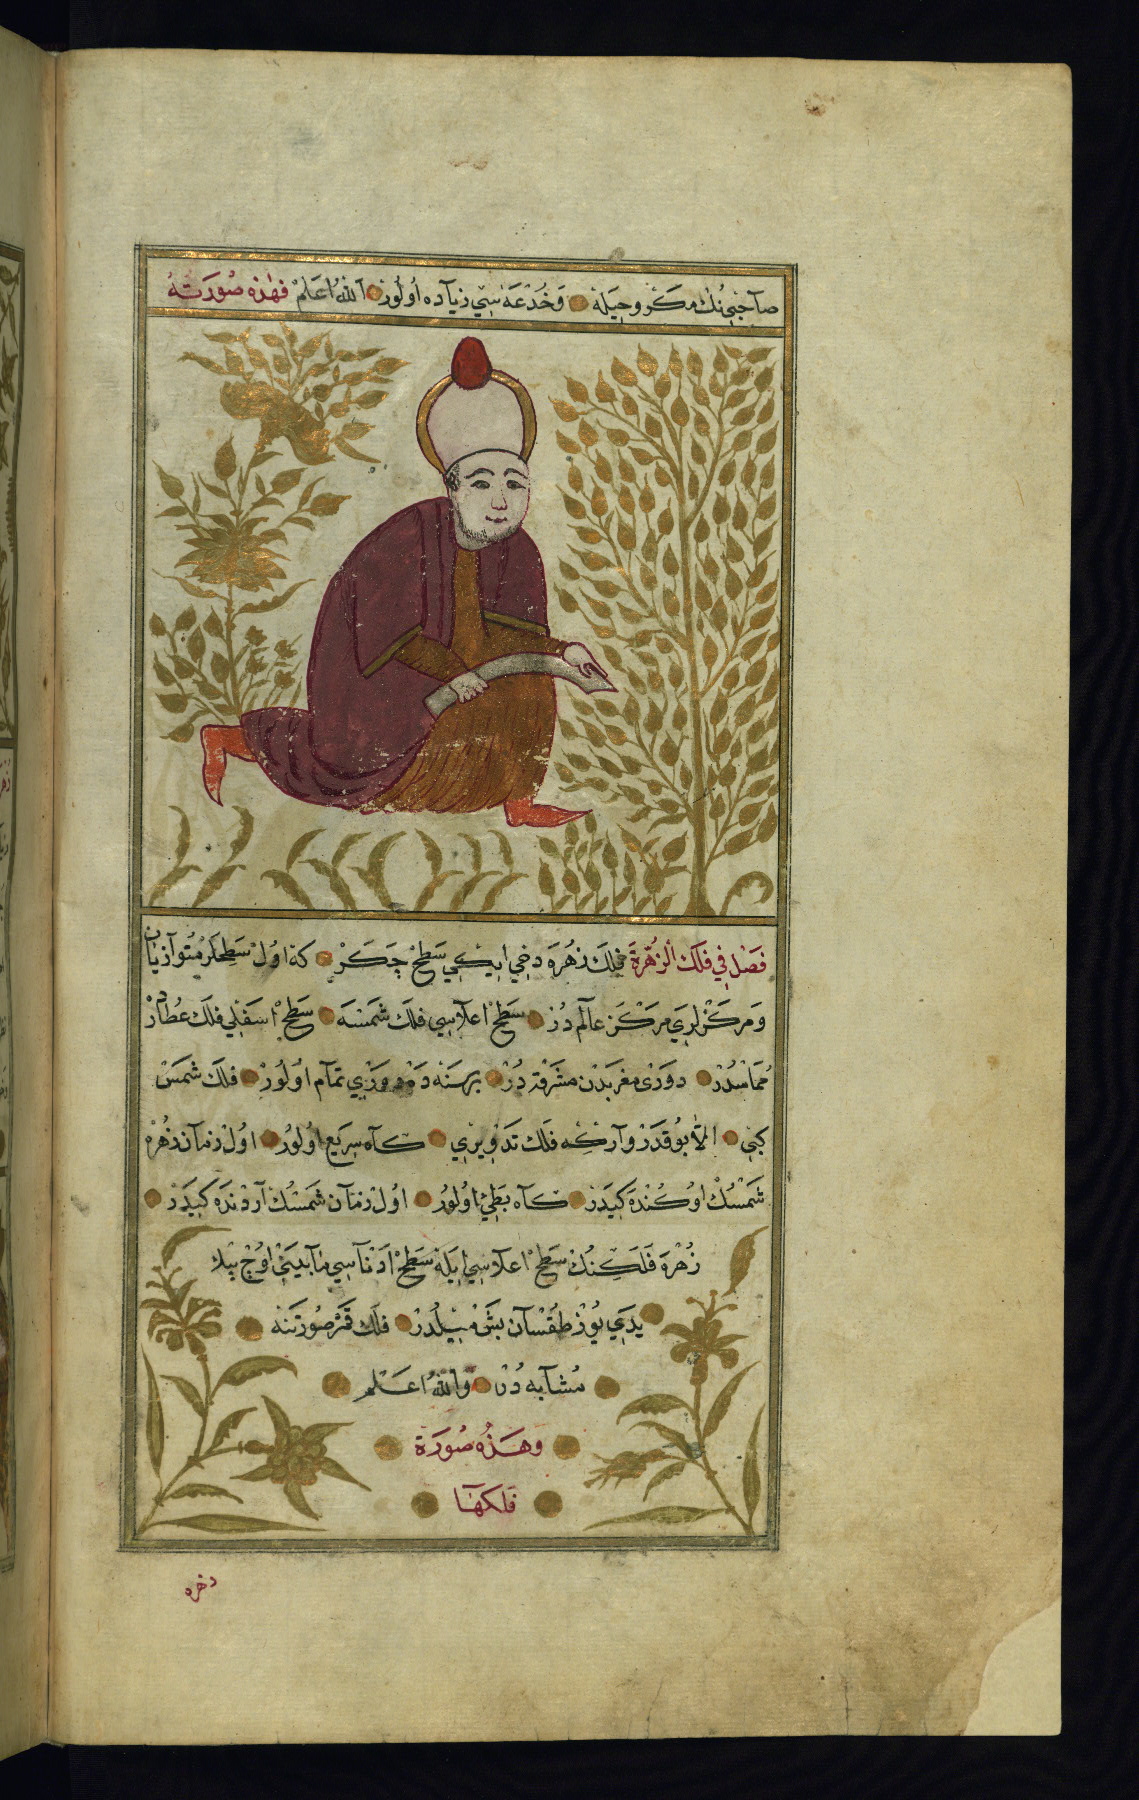 صاحبنك مكر وحيله وخدعه سي زياده اولور الله اعلم فهذه صورته
فصل في فلك الزهرة فلك زهره دخي ايكي سطح چكر كه اول سطحلر متوازيان
ومركزلري مركز عالم در سطح اعلاسي فلك شمسه سطح اسفلي فلك عطارد
مماسدر دوري مغربدن مشرقه در برسنه ده دوري تمام اولور فلك شمس
كبي الا بو قدر وار كه فلك تدويري كاه سريع اولور اول زمان زهره
شمسك اوكنده كيدر كاه بطي اولور اول زمان شمسك اردنده كيدر
زهره فلكنك سطح اعلاسي ايله سطح ادناسي مابيني اوچ بيك
يدي يوز طقسان بش ميلدر فلك قمر صورتنه
مشابه در والله اعلم
وهذه صورة
فلكها